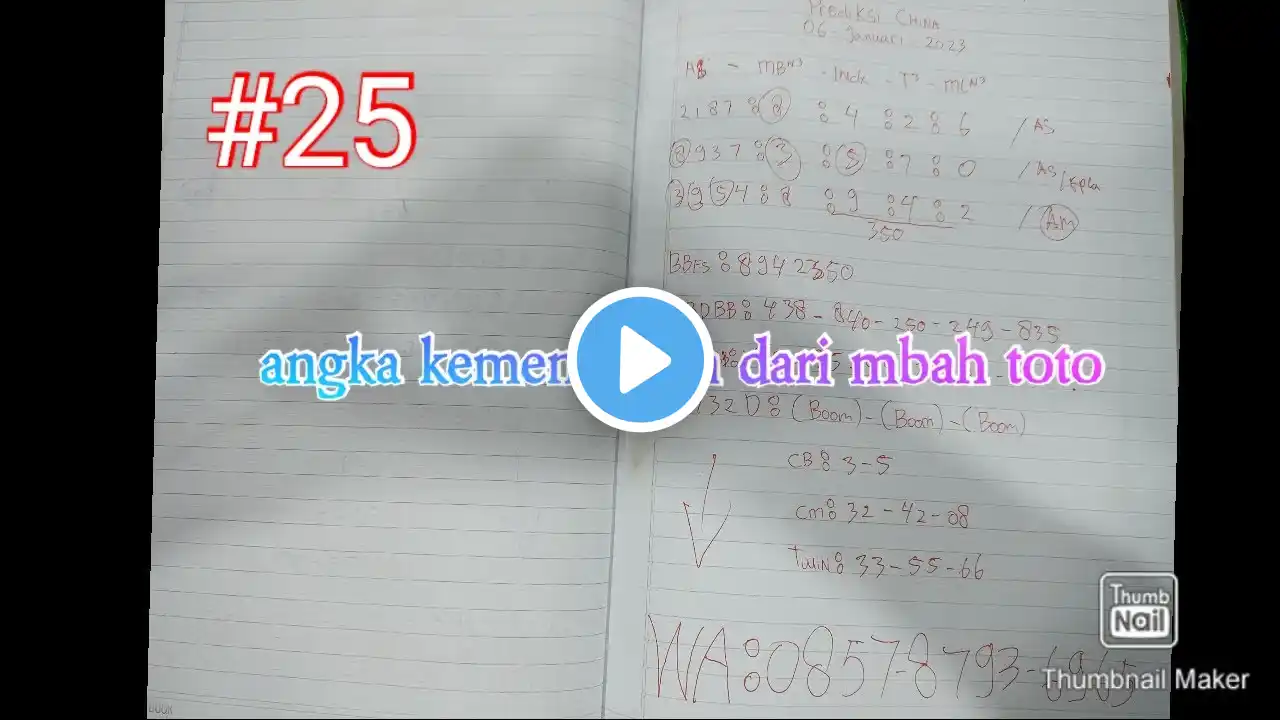 Prediksi China
06 - Januari - 2023
AS - MBN3 - Indk - T3 - MLN3
2187 : 8 : 4 : 2 : 6 / AS
8937 : 3 : 5 : 7 : 0 / AS/kpla
3954 : 8 : 9 : 4 : 2 / Am
350
BBFS : 8942350
DBB : 438 - 840 - 250 - 249 - 835
#25
angka dari mbah toto
32D : (Boom) - (Boom) - (Boom)
CB : 3 - 5
CM : 32 - 42 - 08
TwiN : 33 - 55 - 66
WA : 0857-8793-6965
Thumb
Nail
Thumbnail Maker